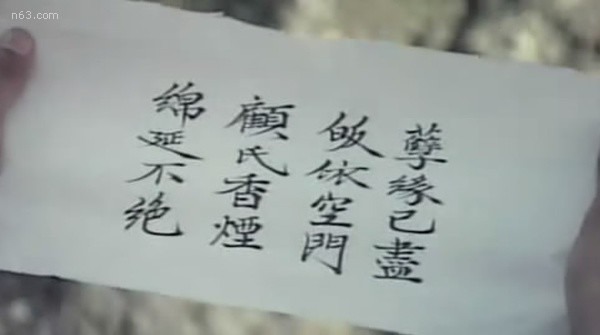 n63.com
孽緣已盡
皈依空門
顧氏香煙
綿延不絕